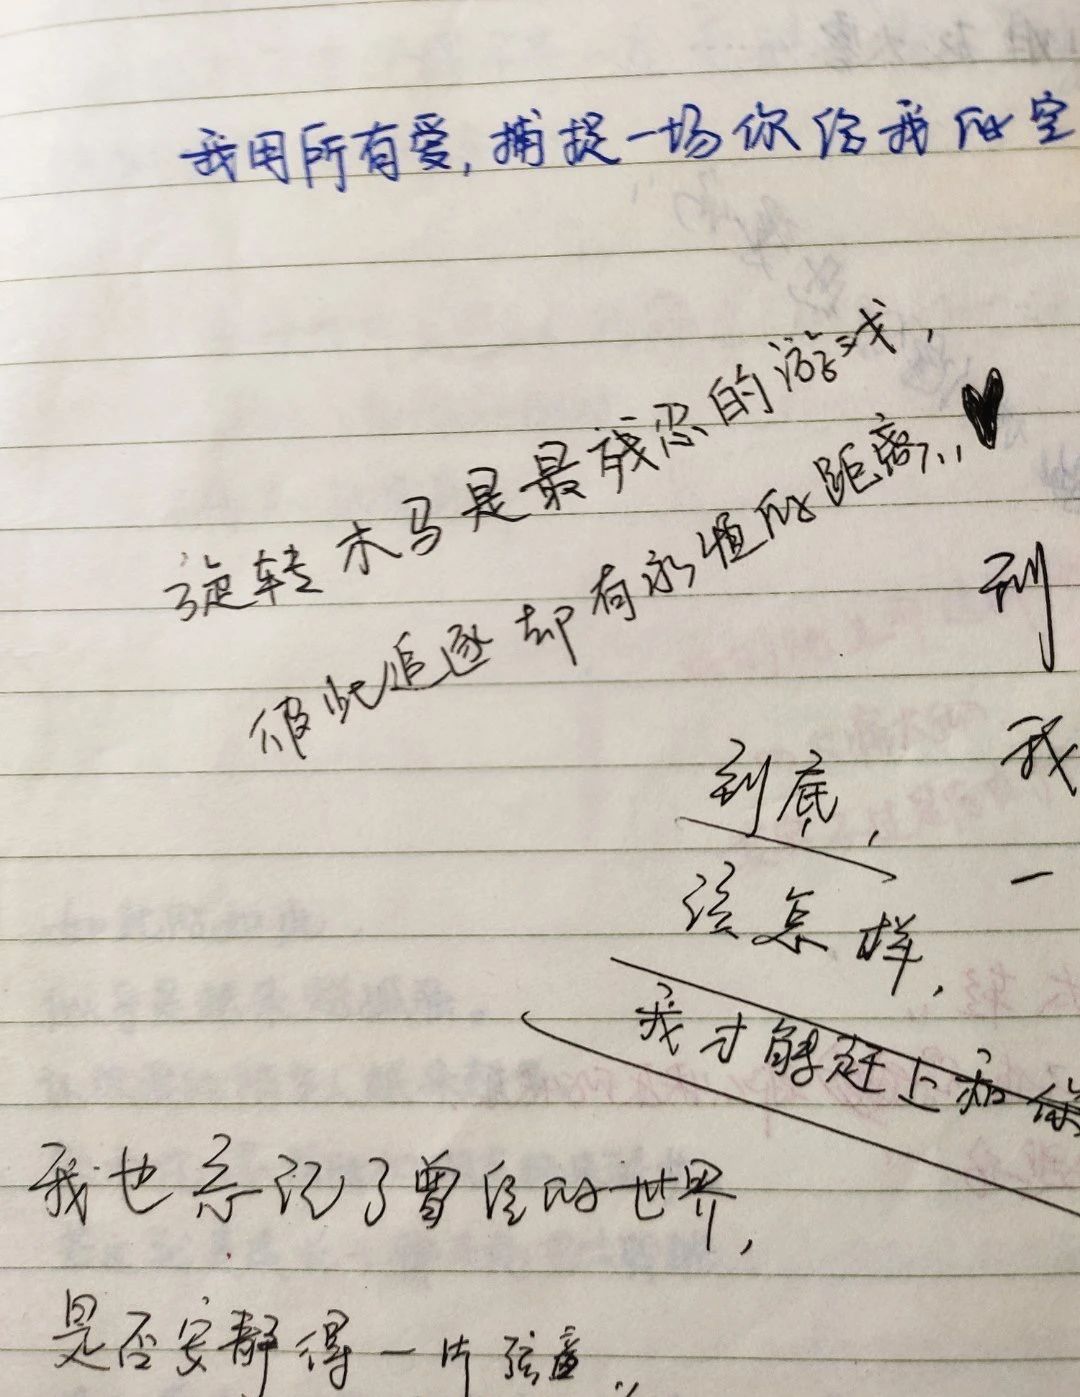 我用所有爱,捕捉一场你给我的空
旋转木马是最残忍的游戏,
彼此追逐却有永恒的距离...
到
我
一
到底,
该怎样,
我才能赶上和你
我也忘记了曾经的世界,
是否安静得一片弦音,